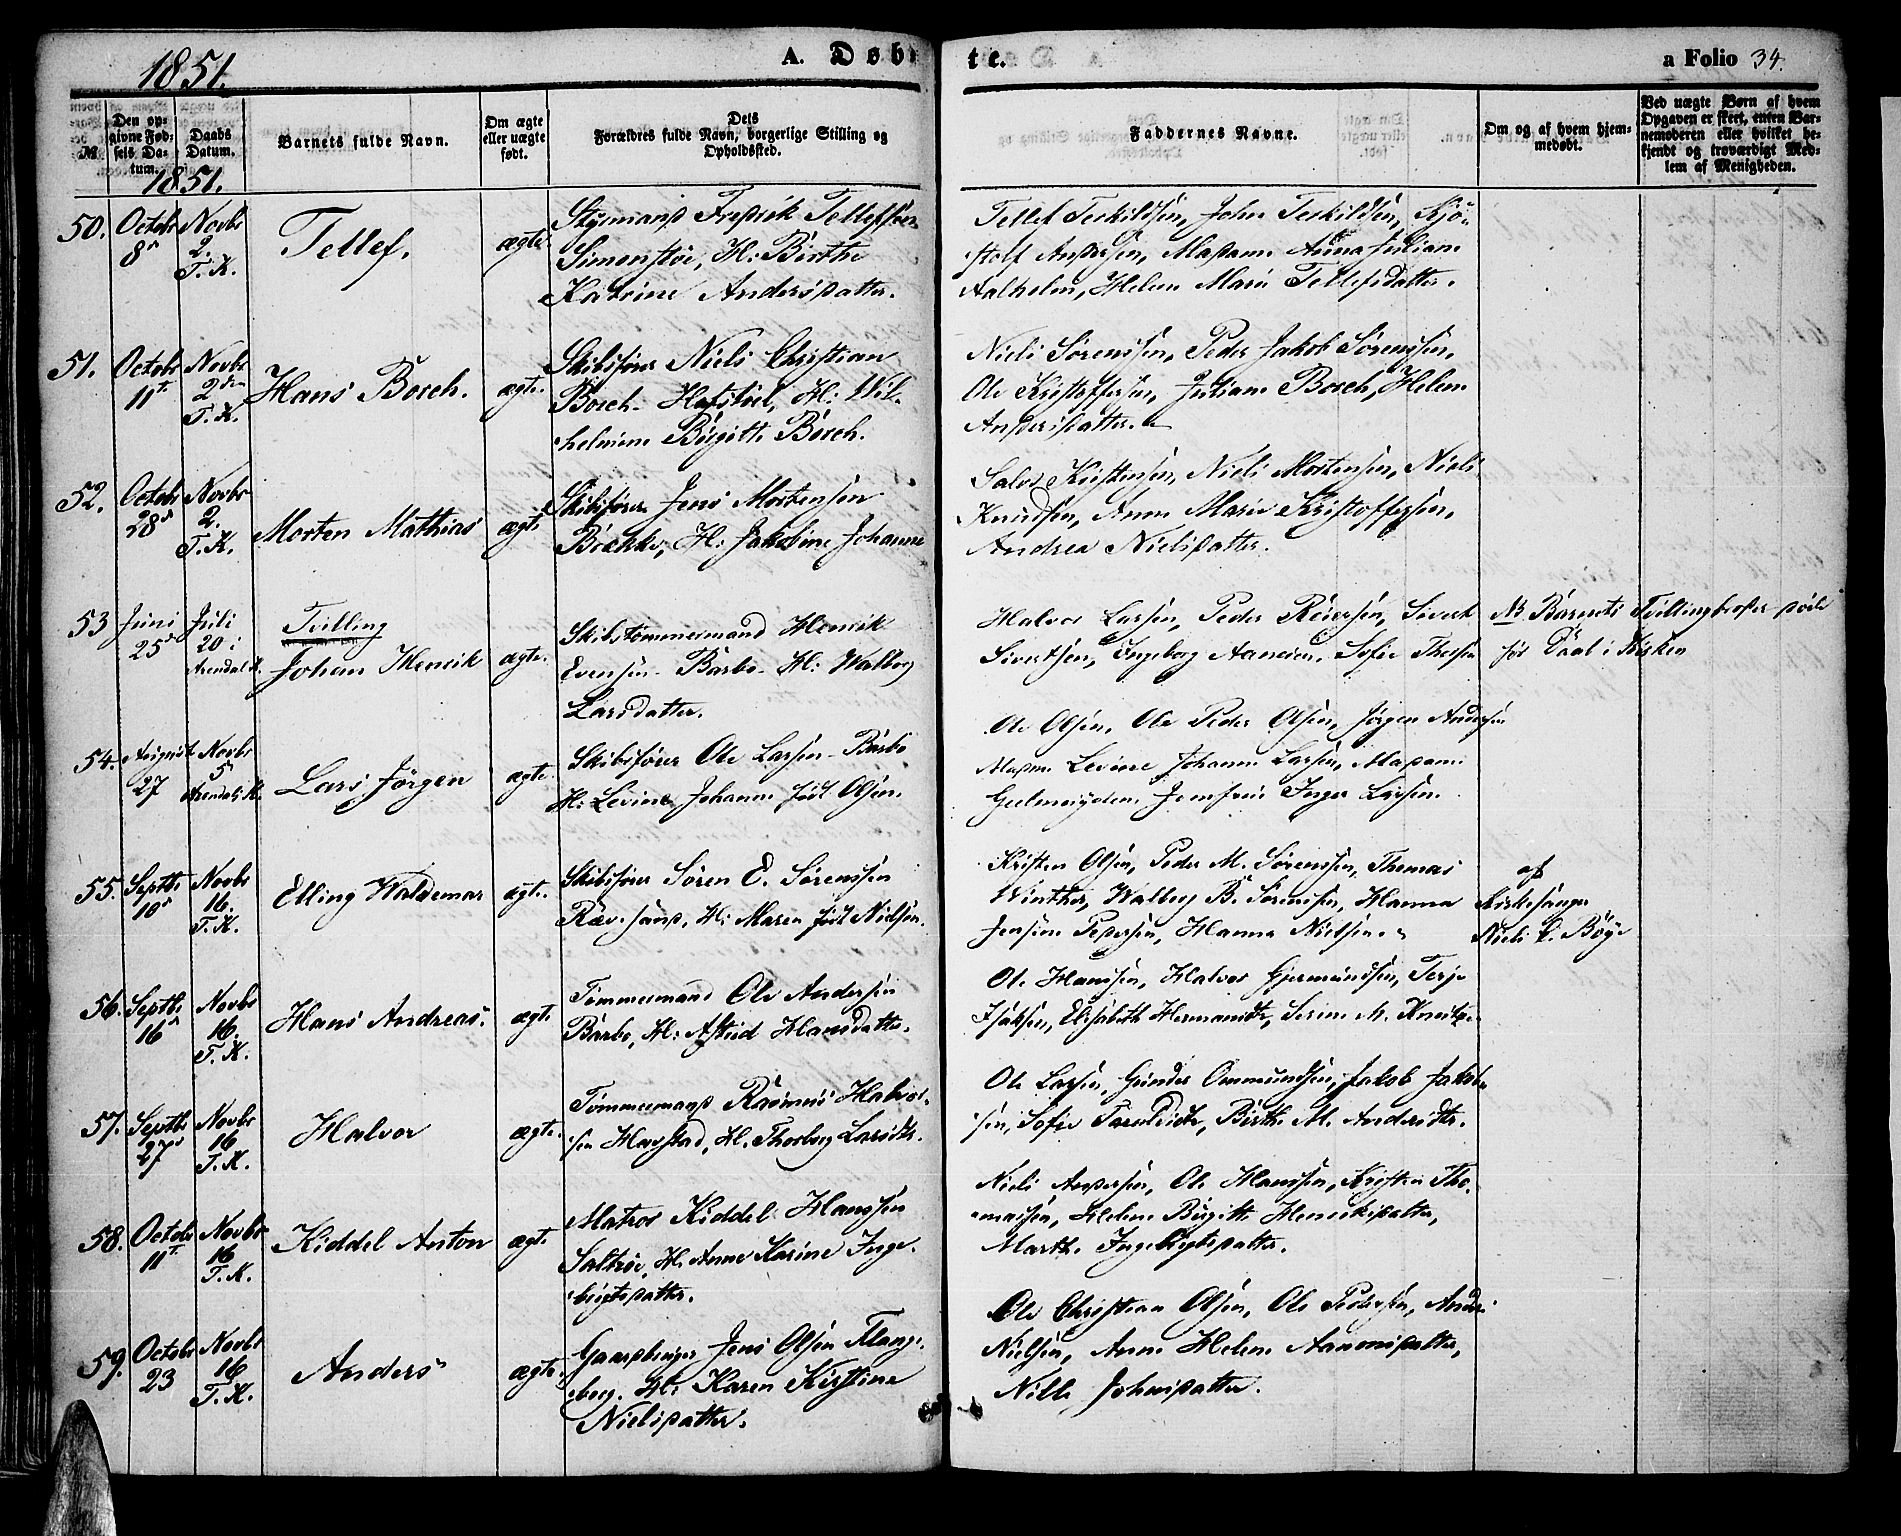 1851.
A. Døbte.
a Folio 34.
№
Den opgivne Fødsels Datum.
Daabs Datum.
Barnets fulde Navn.
Om ægte eller uægte født.
Dets Forældres fulde Navn, borgerlige Stilling og Opholdssted.
Faddernes Navne.
Om og af hvem hjemmedøbt.
Ved uægte Børn af hvem Opgaven er skeet, enten Barnemoderen eller hvilket bekjendt og troværdigt Medlem af Menigheden.
1851.
50. Octobr 8de Novbr 2. T. K. Tellef. ægte
Styrmand Fredrik Tellefsen
Simonstøe, H: Birthe
Katrine Andersdatter.
Tellef Terkildsen, John Terkildsen, Kjö-
stolf Andersen, Madame Anna Juliane
Aalholm, Helene Marie Tellefsdatter.
51. Octobr 11te Novbr 2den T. K. Hans Borch. ægte.
Skibsfører Niels Christian
Borch - H: Wil-
helmine Birgitte Borch.
Niels Sörenssen, Peder Jakob Sörenssen,
Ole Kristoffersen, Juliane Borch, Helene
Andersdatter.
52. Octobr 28de Novbr 2. T. K. Morten Mathias ægte
Skibsfører Jens Mortensen
Brække, H: Jakobine Johanne
Salve Kristensen, Niels Mortensen, Niels
Knudsen, Anne Marie Kristoffersen,
Andrea Nielsdatter.
53 Juni 25de Juli 20 i Arendal K. Tvilling
Johan Henrik ægte.
Skibstømmermand Henrik
Evensen - Barbo - H: Walborg
Larsdatter.
Halvor Larsen, Peder Reiersen, Sivert
Sivertsen, Ingeborg Aanesen, Sofie Thersen
NB Barnets Tvillingbroder døde
før Daab i Kirken
54. August 27 Novbr 5 Arendals K. Lars Jörgen ægte.
Skibsfører Ole Larsen - Barbo
H: Levine Johanne født Olsen.
Ole Olsen, Ole Peder Olsen, Jörgen Andersen
Madme Levine Johanne Larsen, Madame
Geelmuyden, Jomfrue Inger Larsen.
55. Septbr 10de Novbr 16. T. K. Elling Waldemar ægte.
Skibsfører Sören E. Sörenssen
Rævesand, H: Maren født Nielsen.
Kristen Olsen, Peder M. Sörenssen, Thomas
Winther, Walborg B. Sörenssen, Hanna
Jensine Pedersen, Hanna Nielsen.
af
Kirkesanger
Niels C. Bøye
56. Septbr 16de Novbr 16. T. K. Hans Andreas. ægte
Tømmermand Ole Andersen
Barbo, H: Astrid Hansdatter.
Ole Hanssen, Halvor Gjermundsen, Terje
Isaksen, Elisabeth Hermansdtr, Serine M. Knutze-
57. Septbr 27de Novbr 16 T. K. Halvor ægte.
Tømmermand Rasmus Halvor-
sen Havstad, H. Thorborg Larsdtr.
Ole Larsen, Gunder Ommundsen, Jakob Jakob-
sen, Sofie Taraldsdtr, Birthe M. Andersdtr.
58. Octobr 11te Novbr 16 T. K. Kiddel Anton ægte
Matros Kiddel Hanssen
Saltrøe, H. Anne Karine Inge-
brigtsdatter.
Niels Andersen, Ole Hanssen, Kristen Tho-
massen, Helene Birgitte Henriksdatter,
Marthe Ingebrigtsdatter.
59. Octobr 23 Novbr 16 T. K. Anders ægte.
Gaardbruger Jens Olsen Flange-
borg. H: Karen Kirstine
Nielsdatter.
Ole Christian Olsen, Ole Pedersen, Anders
Nielsen, Anne Helene Aanonsdatter,
Nille Johnsdatter.